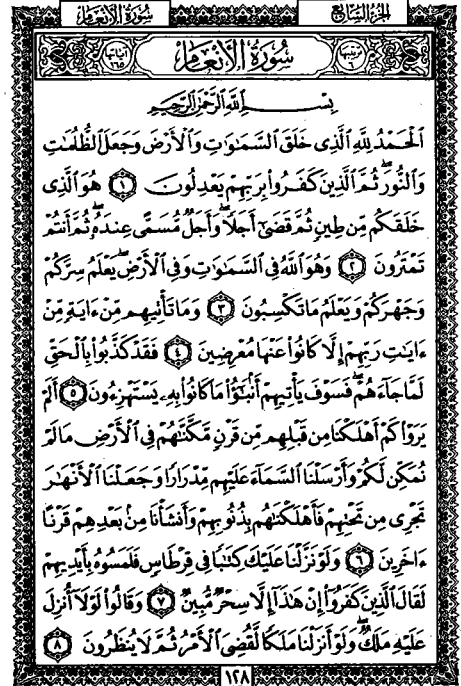 سُورَةُ الأَنْعَام الجُزءُ السَّابِع
تَرتِيبُهَا ٦ سُورَةُ الأَنْعَام آيَاتُهَا ١٦٥
بِسْمِ ٱللَّهِ ٱلرَّحْمَٰنِ ٱلرَّحِيمِ
ٱلْحَمْدُ لِلَّهِ ٱلَّذِى خَلَقَ ٱلسَّمَٰوَٰتِ وَٱلْأَرْضَ وَجَعَلَ ٱلظُّلُمَٰتِ
وَٱلنُّورَ ۖ ثُمَّ ٱلَّذِينَ كَفَرُوا۟ بِرَبِّهِمْ يَعْدِلُونَ ١ هُوَ ٱلَّذِى
خَلَقَكُم مِّن طِينٍ ثُمَّ قَضَىٰٓ أَجَلًا ۖ وَأَجَلٌ مُّسَمًّى عِندَهُۥ ۖ ثُمَّ أَنتُمْ
تَمْتَرُونَ ٢ وَهُوَ ٱللَّهُ فِى ٱلسَّمَٰوَٰتِ وَفِى ٱلْأَرْضِ ۖ يَعْلَمُ سِرَّكُمْ
وَجَهْرَكُمْ وَيَعْلَمُ مَا تَكْسِبُونَ ٣ وَمَا تَأْتِيهِم مِّنْ ءَايَةٍ مِّنْ
ءَايَٰتِ رَبِّهِمْ إِلَّا كَانُوا۟ عَنْهَا مُعْرِضِينَ ٤ فَقَدْ كَذَّبُوا۟ بِٱلْحَقِّ
لَمَّا جَآءَهُمْ ۖ فَسَوْفَ يَأْتِيهِمْ أَنۢبَٰٓؤُا۟ مَا كَانُوا۟ بِهِۦ يَسْتَهْزِءُونَ ٥ أَلَمْ
يَرَوْا۟ كَمْ أَهْلَكْنَا مِن قَبْلِهِم مِّن قَرْنٍ مَّكَّنَّٰهُمْ فِى ٱلْأَرْضِ مَا لَمْ
نُمَكِّن لَّكُمْ وَأَرْسَلْنَا ٱلسَّمَآءَ عَلَيْهِم مِّدْرَارًا وَجَعَلْنَا ٱلْأَنْهَٰرَ
تَجْرِى مِن تَحْتِهِمْ فَأَهْلَكْنَٰهُم بِذُنُوبِهِمْ وَأَنشَأْنَا مِنۢ بَعْدِهِمْ قَرْنًا
ءَاخَرِينَ ٦ وَلَوْ نَزَّلْنَا عَلَيْكَ كِتَٰبًا فِى قِرْطَاسٍ فَلَمَسُوهُ بِأَيْدِيهِمْ
لَقَالَ ٱلَّذِينَ كَفَرُوٓا۟ إِنْ هَٰذَآ إِلَّا سِحْرٌ مُّبِينٌ ٧ وَقَالُوا۟ لَوْلَآ أُنزِلَ
عَلَيْهِ مَلَكٌ ۖ وَلَوْ أَنزَلْنَا مَلَكًا لَّقُضِىَ ٱلْأَمْرُ ثُمَّ لَا يُنظَرُونَ ٨
١٢٨